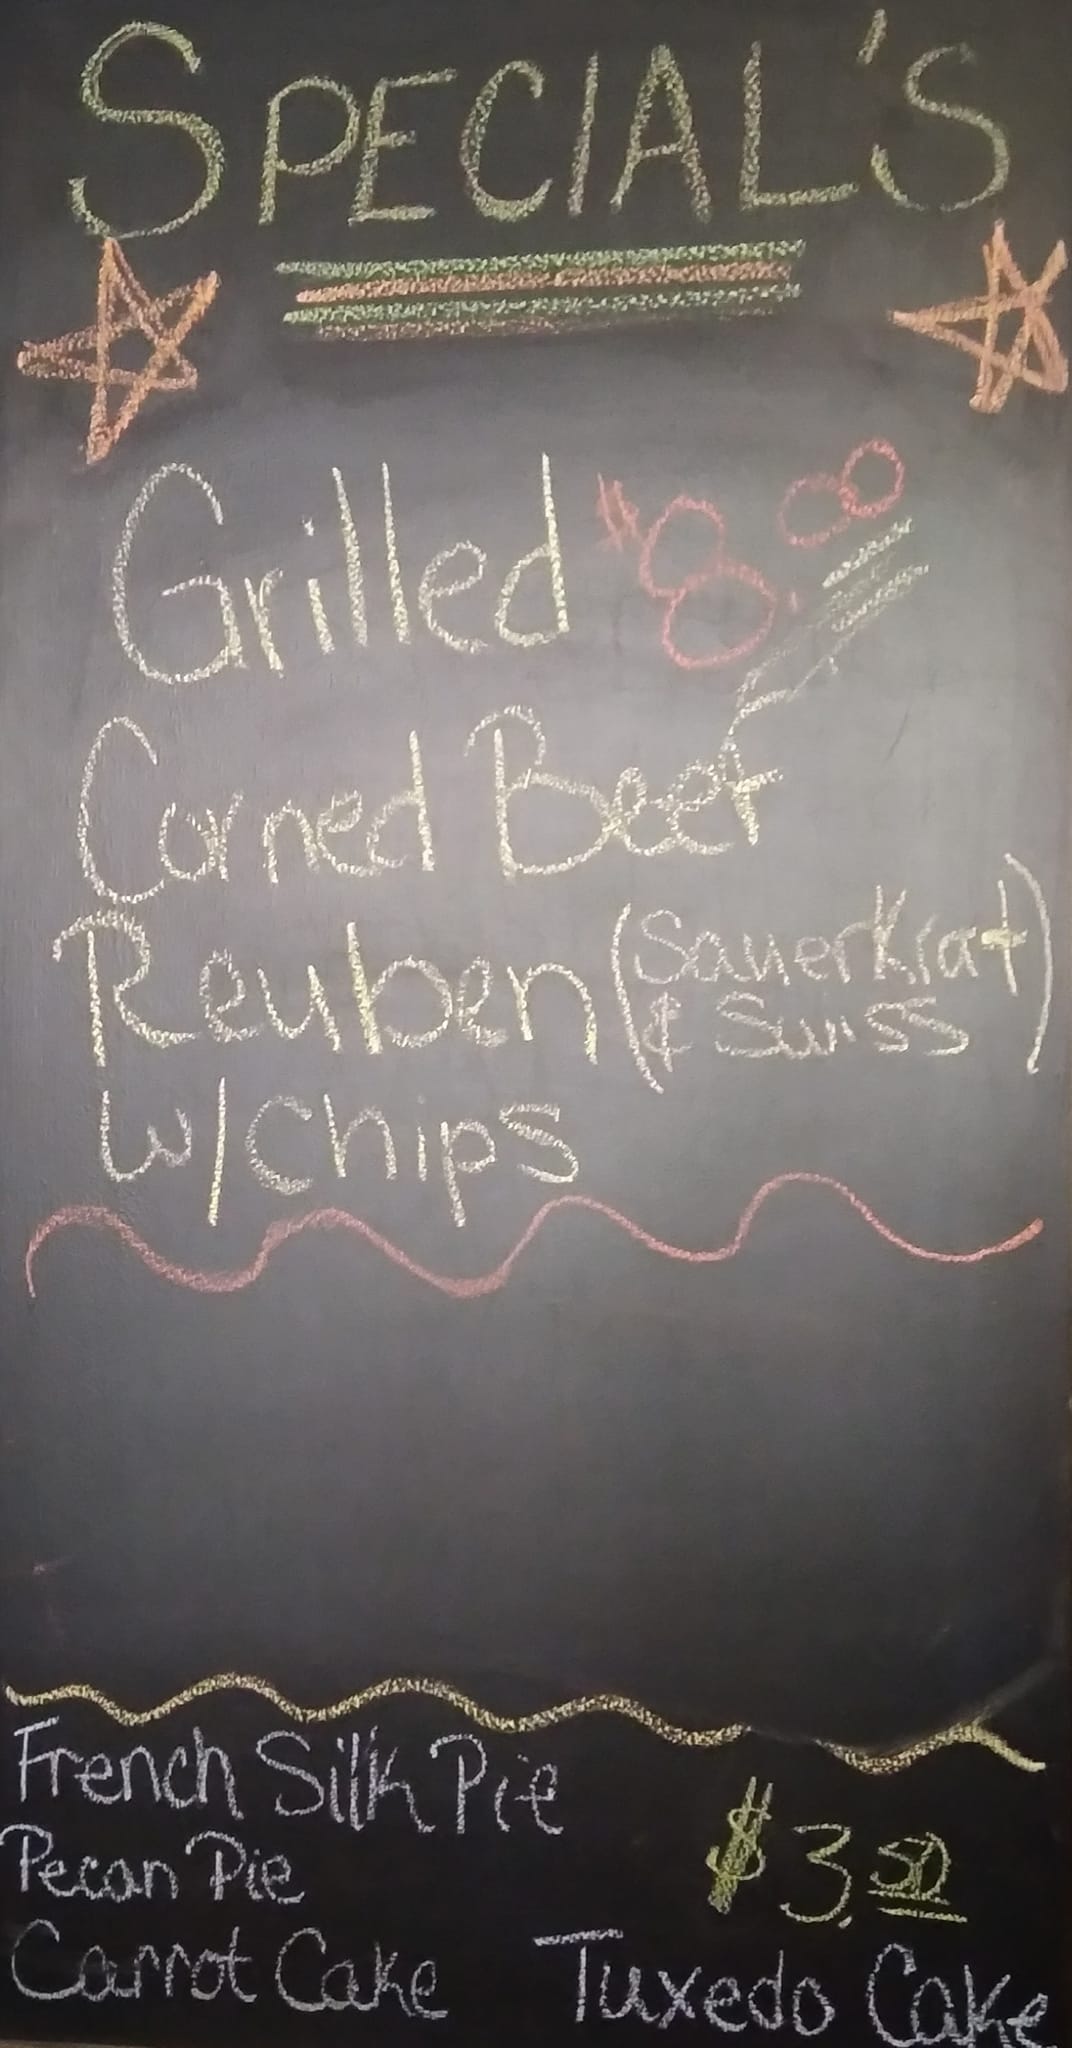 SPECIAL'S
Grilled $8.00
Corned Beef
Reuben (Sauerkrat
& Swiss)
w/chips
French Silk Pie
Pecan Pie
$3.50
Carrot Cake
Tuxedo Cake